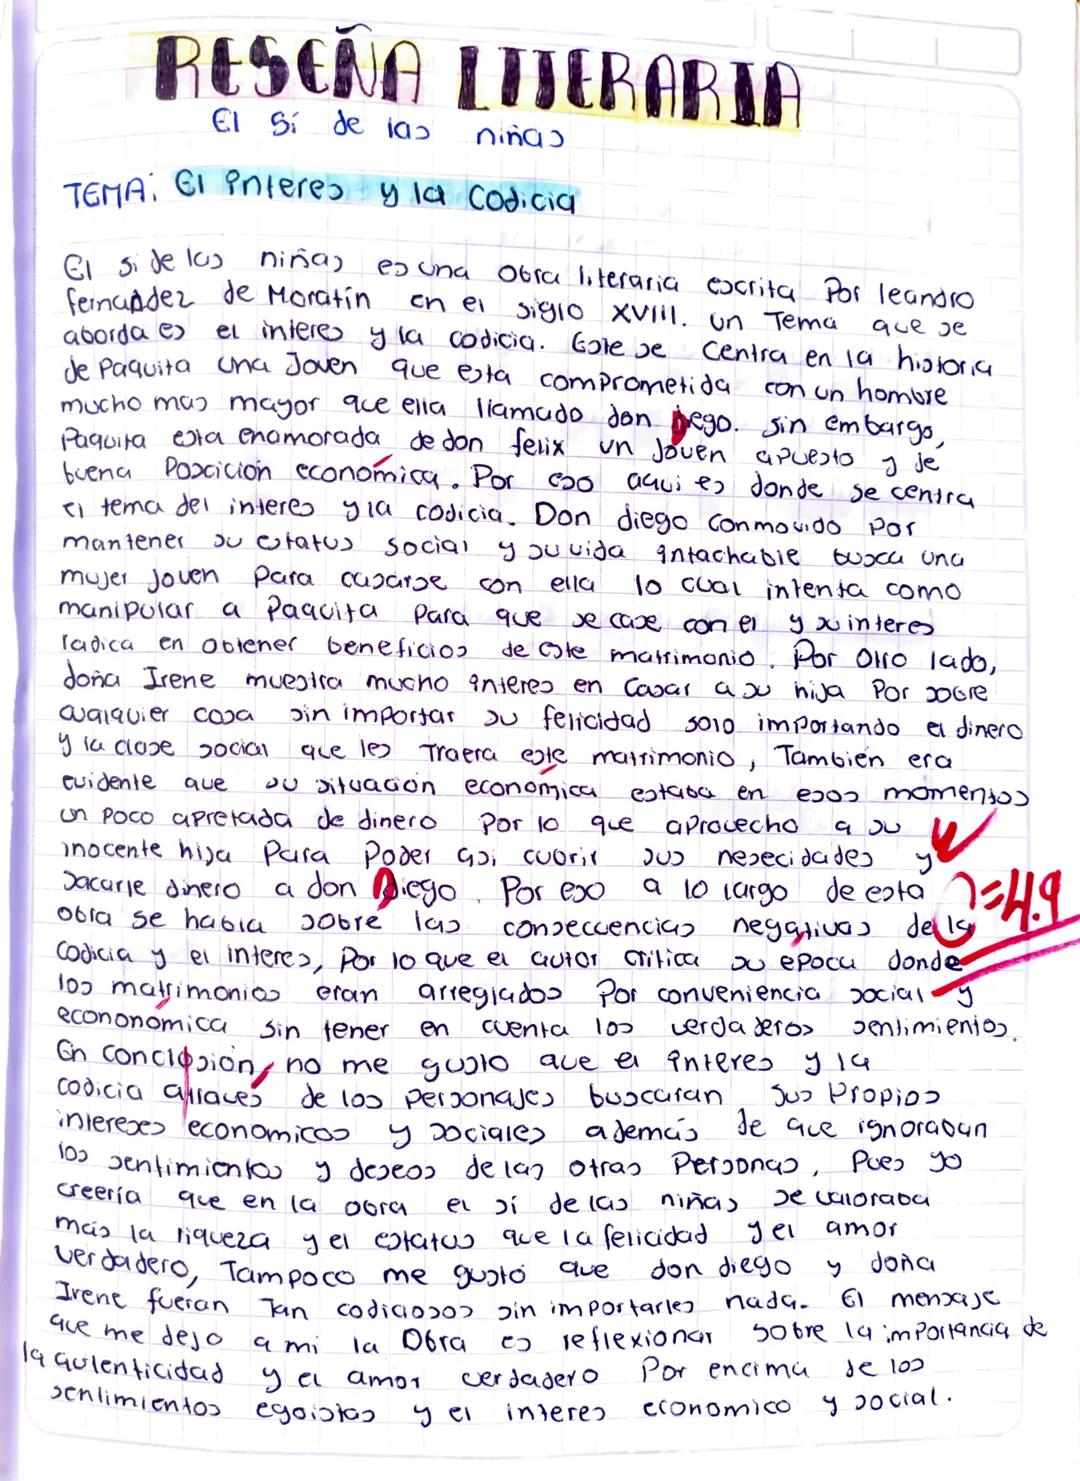 RESEÑA LITERARIA
El Sí de las niñas
TEMA: El interes y la Codicia
El si de las niñas es una Obra literaria escrita Por leandro
fernandez de Moratín en el siglo XVIII. un Tema que se
aborda es el interes y la codicia. Este se Centra en la historia
de Paquita una Joven que esta comprometida con un hombre
mucho mas mayor que ella llamado don Diego. sin embargo,
Paquita esta enamorada de don felix un Joven apuesto y de
buena Poscición económica. Por eso aqui es donde se centra
el tema del interes y la codicia. Don diego conmovido por
mantener su estatus social y su vida intachable busca una
mujer joven Para casarse con ella lo cual intenta como
manipular a Paquita Para que se case con el y su interes
radica en obtener beneficios de este matrimonio. Por Otro lado,
doña Irene muestra mucho interes en Casar a su hija Por sobre
cualquier cosa sin importar su felicidad solo importando el dinero
y la clase social que les Traera este matrimonio, También era
evidente que su situación económica estaba en esos momentos
un poco apretada de dinero Por lo que aprovecho a su
inocente hija Para Poder asi cubrir sus nesecidades y
sacarle dinero a don Diego. Por eso a lo largo de esta
obra se habla sobre las consecuencias negativas de la
codicia y el interes, Por lo que el autor critica su epoca donde
los matrimonios eran arreglados Por conveniencia social y
econonómica sin tener en cuenta los verdaderos sentimientos.
En conclusión, no me gusto que el interes y la
codicia através de los personajes buscaran sus Propios
intereses economicos y sociales además de que ignoraban
los sentimientos y deseos de las otras Personas, Pues yo
creería que en la obra el sí de las niñas se valoraba
más la riqueza y el estatus que la felicidad y el amor
verdadero, Tampoco me gustó que don diego y doña
Irene fueran Tan codiciosos sin importarles nada. El mensaje
que me dejo a mi la Obra es reflexionar sobre la importancia de
la autenticidad y el amor verdadero Por encima de los
sentimientos egoistas y el interes economico y social.
=4.9